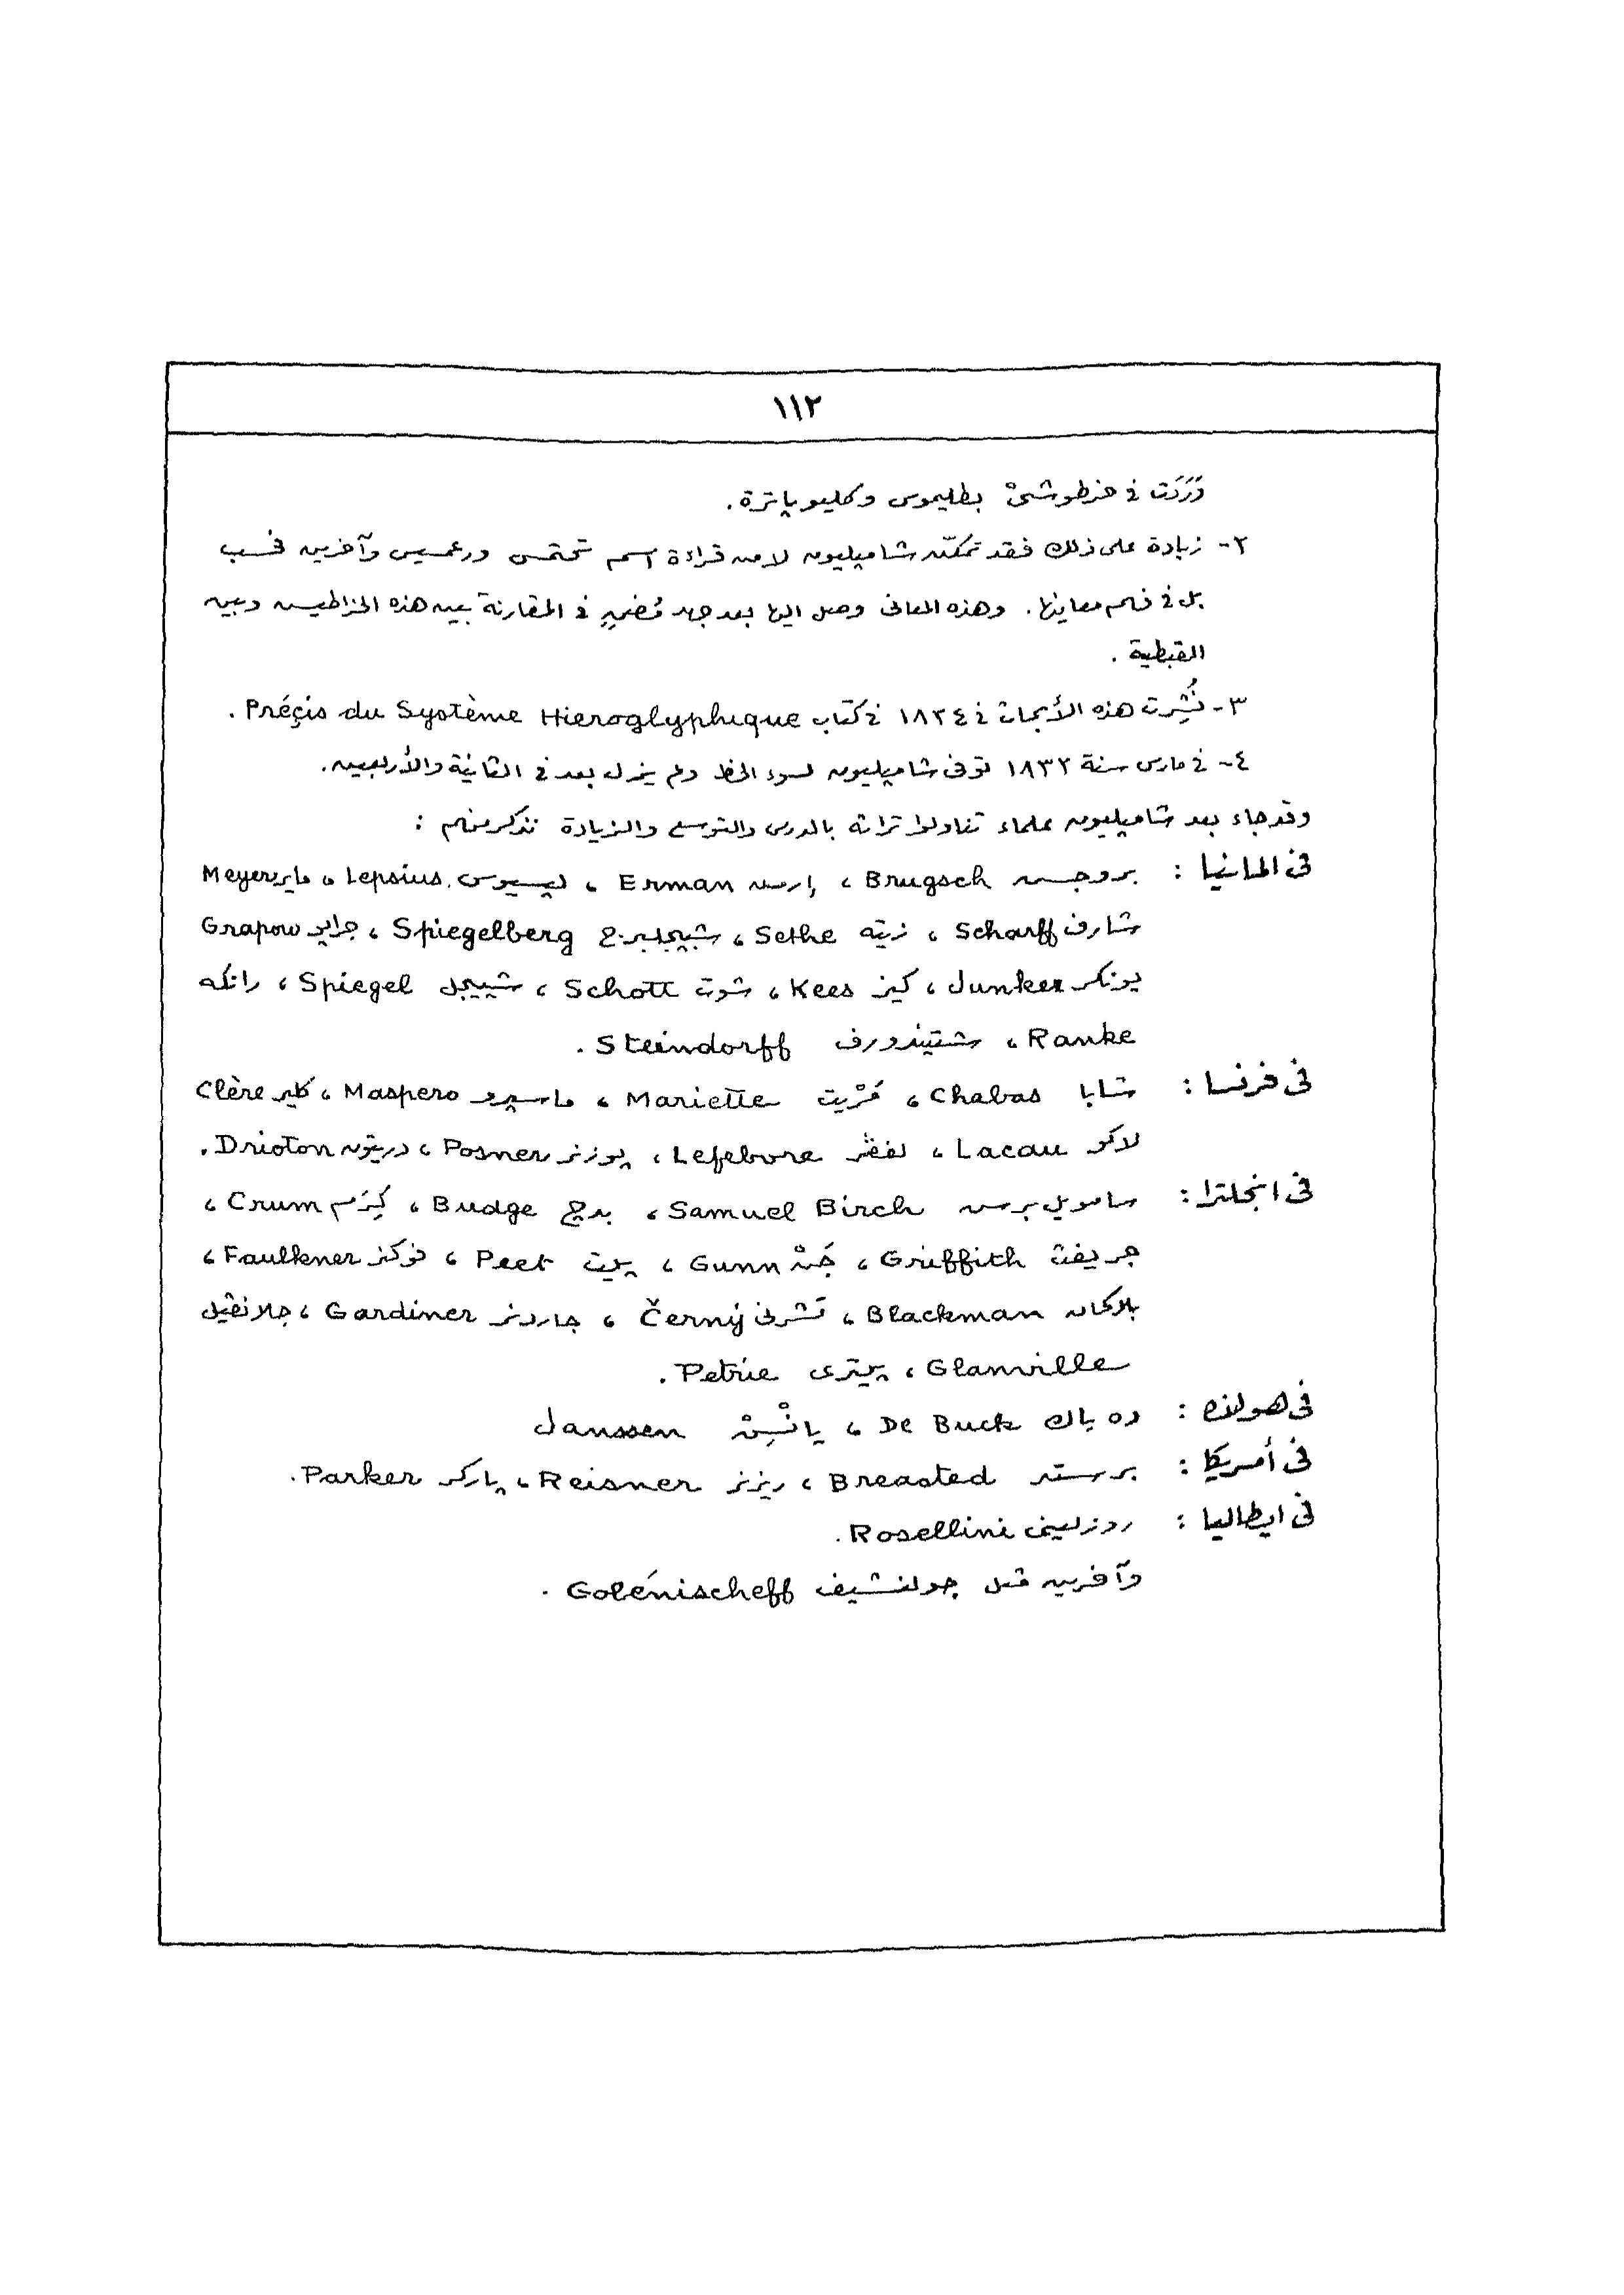 ١١٢
وَرَدَت فى خرطوشىْ بطليموس وكليوباترة.
٢- زيادة على ذلك فقد تمكّن شامپليون لا من قراءة اسم تحتمس ورعمسيس وآخرين فحسب
بل فى فهم معاينها. وهذه المعانى وصل اليها بعد جهد مُضنٍ فى المقارنة بين هذه الخراطيس وبين
القبطية.
٣- نُشِرت هذه الأبحاث فى ١٨٢٤ فى كتاب Préçis du Système Hieroglyphique.
٤- فى مارس سنة ١٨٣٢ توفى شامپليون لسوء الحظ ولم يزل بعد فى الثانية والأربعين.
وقد جاء بعد شامپليون علماء تناولوا تراثه بالدرس والتوسع والزيادة نذكر منهم :
فى المانيا : بروجسن Brugsch، إرمن Erman، لپسيوس Lepsius، ماير Meyer
شارف Scharff، زيته Sethe، شبيجلبرج Spiegelberg، جراپو Grapow
يونكر Junker، كيز Kees، شوت Schott، شپيجل Spiegel، رانكه
Ranke، شتيندورف Steindorff.
فى فرنسا : شابا Chabas، مَرْيت Mariette، ماسپرو Maspero، كلير Clère
لاكو Lacau، لفڤر Lefebvre، پوزنر Posner، دريتون Drioton.
فى انجلترا : صامويل برسن Samuel Birch، بدج Budge، كِرَم Crum،
جريفث Griffith، جَنْ Gunn، پيت Peet، فوكنر Faulkner،
بلاكمان Blackman، تشرنى Černý، جاردنر Gardiner، جلانڤيل
Glanville، پيترى Petrie.
فى هولنده : ده باك De Buck، يانْسِنْ Janssen
فى أمريكا : برستد Breasted، ريزنر Reisner، پاركر Parker.
فى ايطاليا : روزلينى Rosellini.
وآخرين مثل جولنشيف Golénischeff.